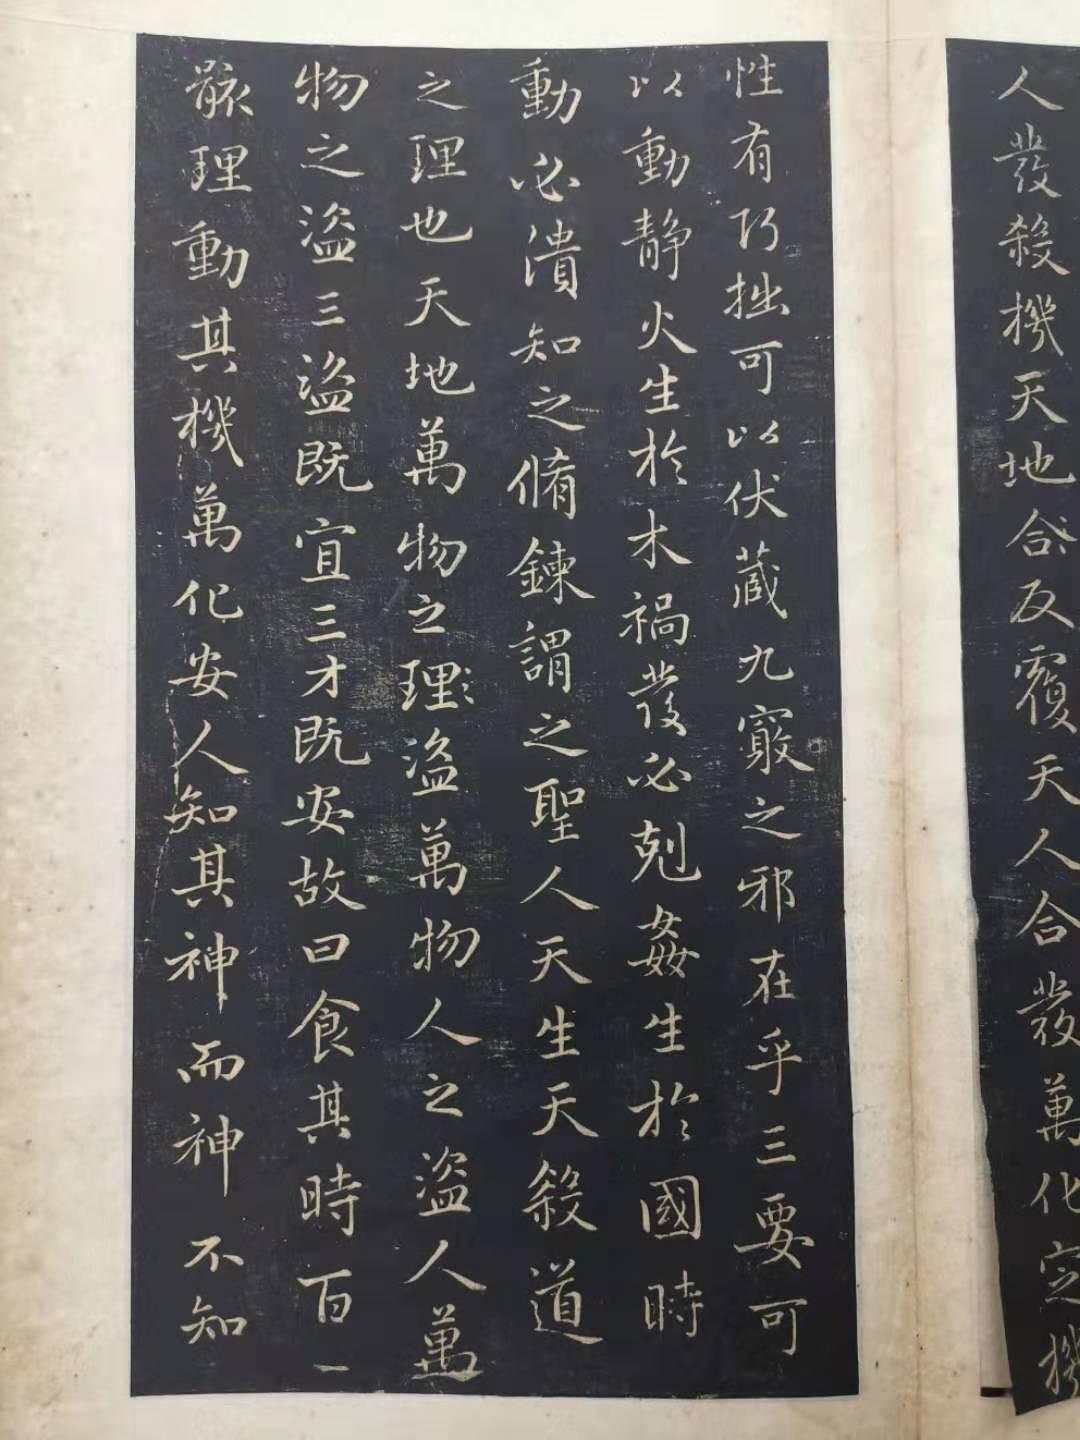 人發殺機天地合反覆天人合發萬化定機
性有巧拙可以伏藏九竅之邪在乎三要可
以動靜火生於木禍發必剋姦生於國時
動必潰知之脩鍊謂之聖人天生天殺道
之理也天地萬物之理盜萬物人之盜人萬
物之盜三盜既宜三才既安故曰食其時百一
骸理動其機萬化安人知其神而神不知